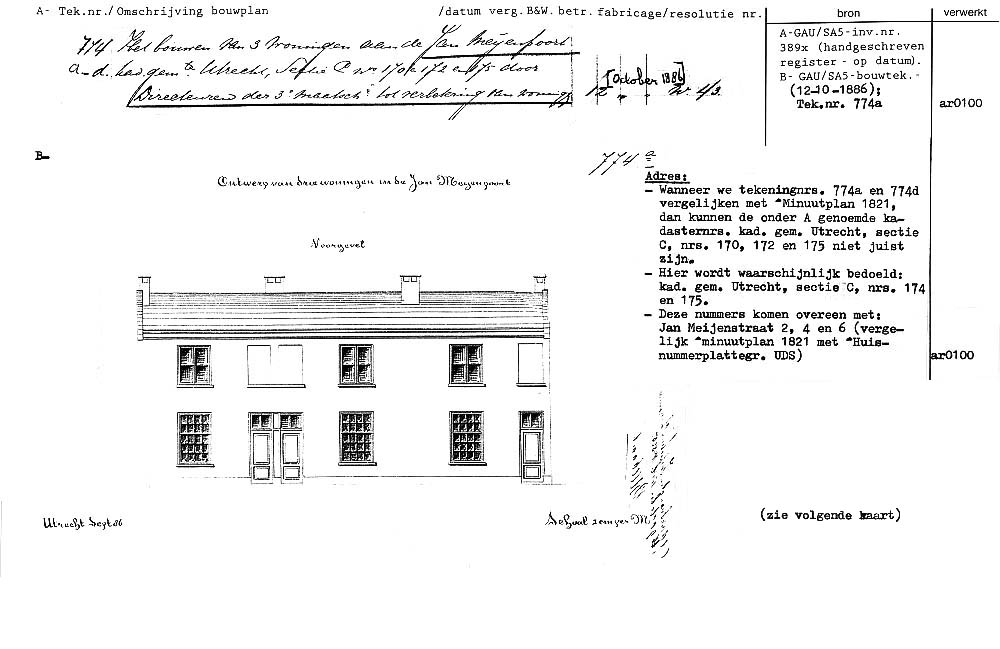 A- Tek.nr./Omschrijving bouwplan /datum verg.B&W.betr.fabricage/resolutie nr. bron verwerkt
774 Het bouwen van 3 woningen aan de Jan Meijenpoort
a-d. kad. gemte Utrecht, Sectie C nrs 170, 172 en 175 door
Directeuren der 3e maatsch. tot verbetering van woning
[October 1886]
12 " " W. 43.
A-GAU/SA5-inv.nr.
389x (handgeschreven
register - op datum).
B- GAU/SA5-bouwtek.-
(12-10-1886);
Tek.nr. 774a
ar0100
B-
774 a
Ontwerp van drie woningen in de Jan Meyenpoort
Voorgevel
Adres:
- Wanneer we tekeningnrs. 774a en 774d
vergelijken met *Minuutplan 1821,
dan kunnen de onder A genoemde ka-
dasternrs. kad. gem. Utrecht, sectie
C, nrs. 170, 172 en 175 niet juist
zijn.
- Hier wordt waarschijnlijk bedoeld:
kad. gem. Utrecht, sectie C, nrs. 174
en 175.
- Deze nummers komen overeen met:
Jan Meijenstraat 2, 4 en 6 (verge-
lijk *minuutplan 1821 met *Huis-
nummerplattegr. UDS)
ar0100
Utrecht Sept 86
School 1 cm per M
(zie volgende kaart)